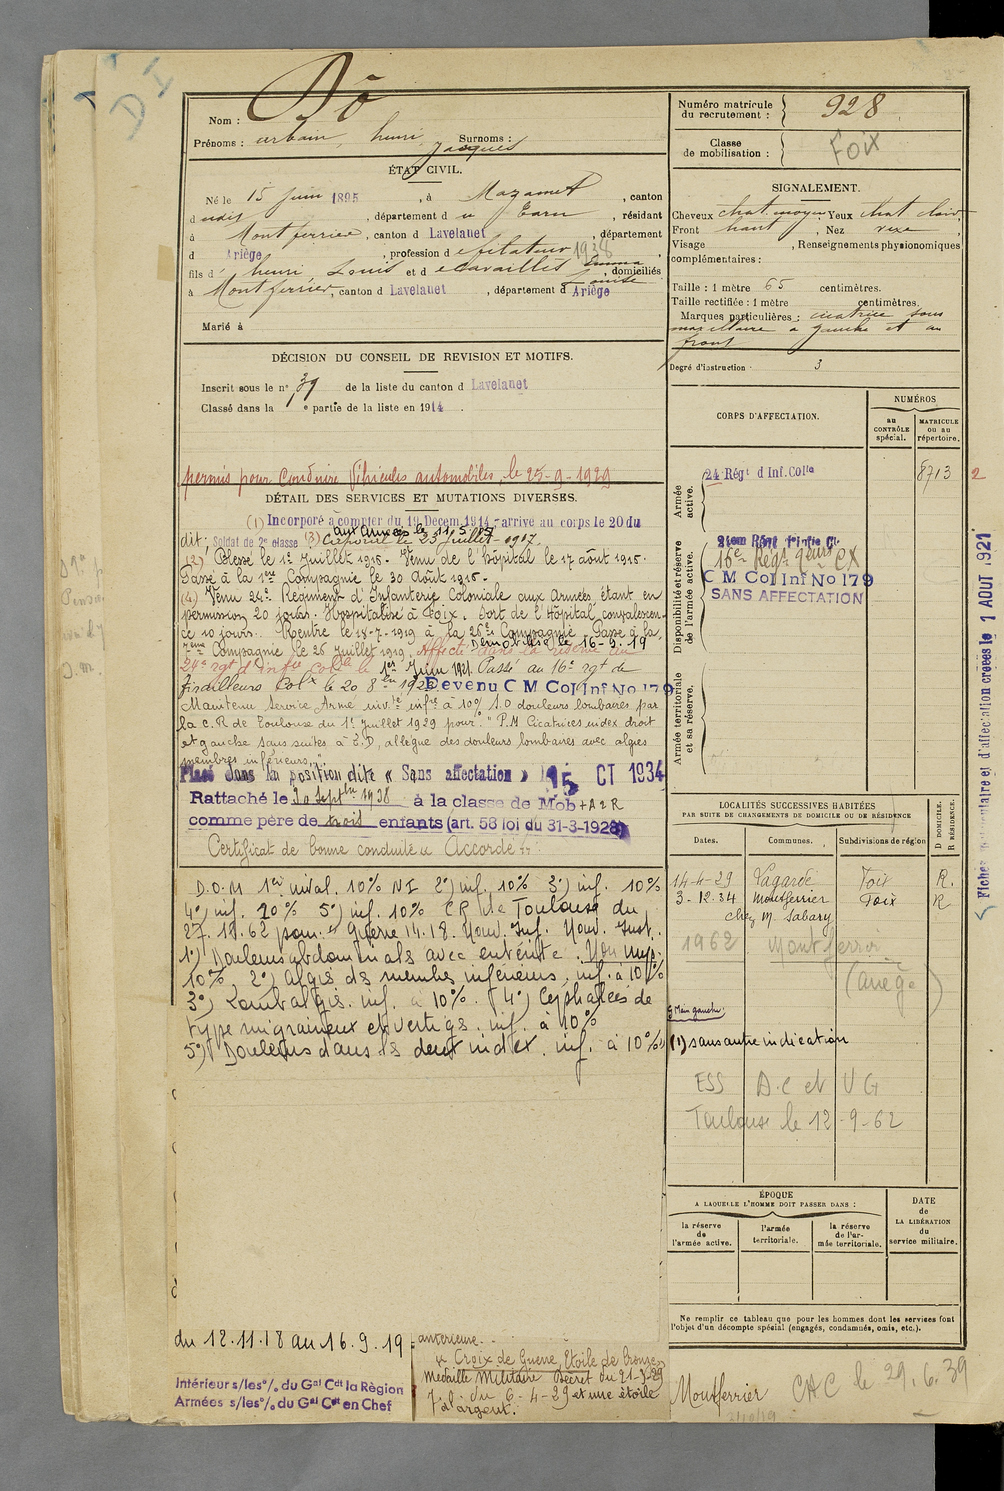 DI
Nom : Dô
Prénoms : urbain, henri Surnoms :
Jacques
ÉTAT CIVIL.
Né le 15 Juin 1895, à Mazamet, canton
dudit, département du Tarn, résidant
à Montferrier, canton d Lavelanet, département
d Ariège, profession de filateur 1938
fils d' henri, Louis et de Cavaillès Emma, domiciliés
Louise
à Montferrier, canton d Lavelanet, département d Ariège
Marié à
DÉCISION DU CONSEIL DE REVISION ET MOTIFS.
Inscrit sous le n° 39 de la liste du canton d Lavelanet
Classé dans la e partie de la liste en 1914.
permis pour Conduire Véhicules automobiles, le 25-9-1929
DÉTAIL DES SERVICES ET MUTATIONS DIVERSES.
(1) Incorporé à compter du 19 Décem. 1914 - arrivé au corps le 20 du
aux Armées le 11 5
dit; Soldat de 2e classe (3) Caporal le 23 Juillet 1917.
(2) Blessé le 1er Juillet 1915. Venu de l'hôpital le 17 août 1915.
Passé à la 1ère Compagnie le 30 Août 1915.
(4) Venu 24e Régiment d'Infanterie Coloniale aux Armées, étant en
permission 20 jours. Hospitalisé à Foix. Sort de l'Hôpital, convalescen-
ce 10 jours. Rentré le 14-7-1919 à la 26e Compagnie. Passé à la
7ème Compagnie le 26 Juillet 1919. Démobilisé le 16-9-19
Affecté dans la réserve au
24e rgt d'infie colle le 1er Juin 1921. Passé au 16e rgt de
Tirailleurs Colx le 20 8bre 192 Devenu C M Col Inf No 179
Maintenu Service Armé inv.té infre à 10% S.O douleurs lombaires par
la C.R de Toulouse du 1er Juillet 1929 pour: "P.M Cicatrices index droit
et gauche sans suites à E.D, allègue des douleurs lombaires avec algies
membres inférieurs."
Placé dans la position dite « Sans affectation » 15 OCT 1934
Rattaché le 30 Septbre 1938 à la classe de Mob + A 2 R
comme père de trois enfants (art. 58 loi du 31-3-1928)
Certificat de bonne conduite « Accordé »
D.O.M 1er inval. 10% NI 2°) inf. 10% 3°) inf. 10%
4°) inf. 20% 5°) inf. 10% CR de Toulouse du
62 pour guerre 14.18. Nouv. Inf. Nouv. Inst.
1°) Douleurs abdominales avec entérite. Non imp.
10%, 2°) Algies des membres inférieurs, inf. à 10%
3°) Lombalgies. inf. à 10%. (4°) Céphalées de
type migraineux et vertiges. inf. à 10%
5°) Douleurs dans les deux index. inf. à 10% (1)
du 12.11.18 au 16.9.19
Intérieur s/les o/. du Gal Cdt la Région
Armées s/les o/. du Gal Cdt en Chef
antérieure.
Croix de Guerre, Etoile de bronze
Médaille Militaire Décret du
J.O. du 6-4-29 et une étoile
d'argent.
Numéro matricule
du recrutement : 928
Classe
de mobilisation : Foix
SIGNALEMENT.
Cheveux chat. moyen Yeux chat clair
Front haut, Nez vexe,
Visage , Renseignements physionomiques
complémentaires :
Taille : 1 mètre 65 centimètres.
Taille rectifiée : 1 mètre centimètres.
Marques particulières : cicatrice sous
maxillaire à gauche et au
front
Degré d'instruction 3
CORPS D'AFFECTATION.
NUMÉROS
au
CONTRÔLE
spécial.
MATRICULE
ou au
répertoire.
Armée
active.
24 Régt d Inf. Colle 8713 2
Disponibilité et réserve
de l'armée active.
16e Régt CX
C M Col Inf No 179
SANS AFFECTATION
Armée territoriale
et sa réserve.
LOCALITÉS SUCCESSIVES HABITÉES
PAR SUITE DE CHANGEMENTS DE DOMICILE OU DE RÉSIDENCE
Dates. Communes. Subdivisions de région
D. DOMICILE.
R. RÉSIDENCE.
14-4-29 Lagarde Foix R.
3-12.34 Montferrier Foix R
chez M. Sabary
1962 Montferrier
(Ariège)
Main gauche
(1) sans autre indication
ESS D.C et V G
Toulouse le 12-9-62
ÉPOQUE
A LAQUELLE L'HOMME DOIT PASSER DANS :
la réserve
de
l'armée active.
l'armée
territoriale.
la réserve
de l'ar-
mée territoriale.
DATE
de
LA LIBÉRATION
du
service militaire.
Ne remplir ce tableau que pour les hommes dont les services font
l'objet d'un décompte spécial (engagés, condamnés, omis, etc.).
Montferrier CAC le 29.6.39
et d'affectation créées le 1 AOUT 1921